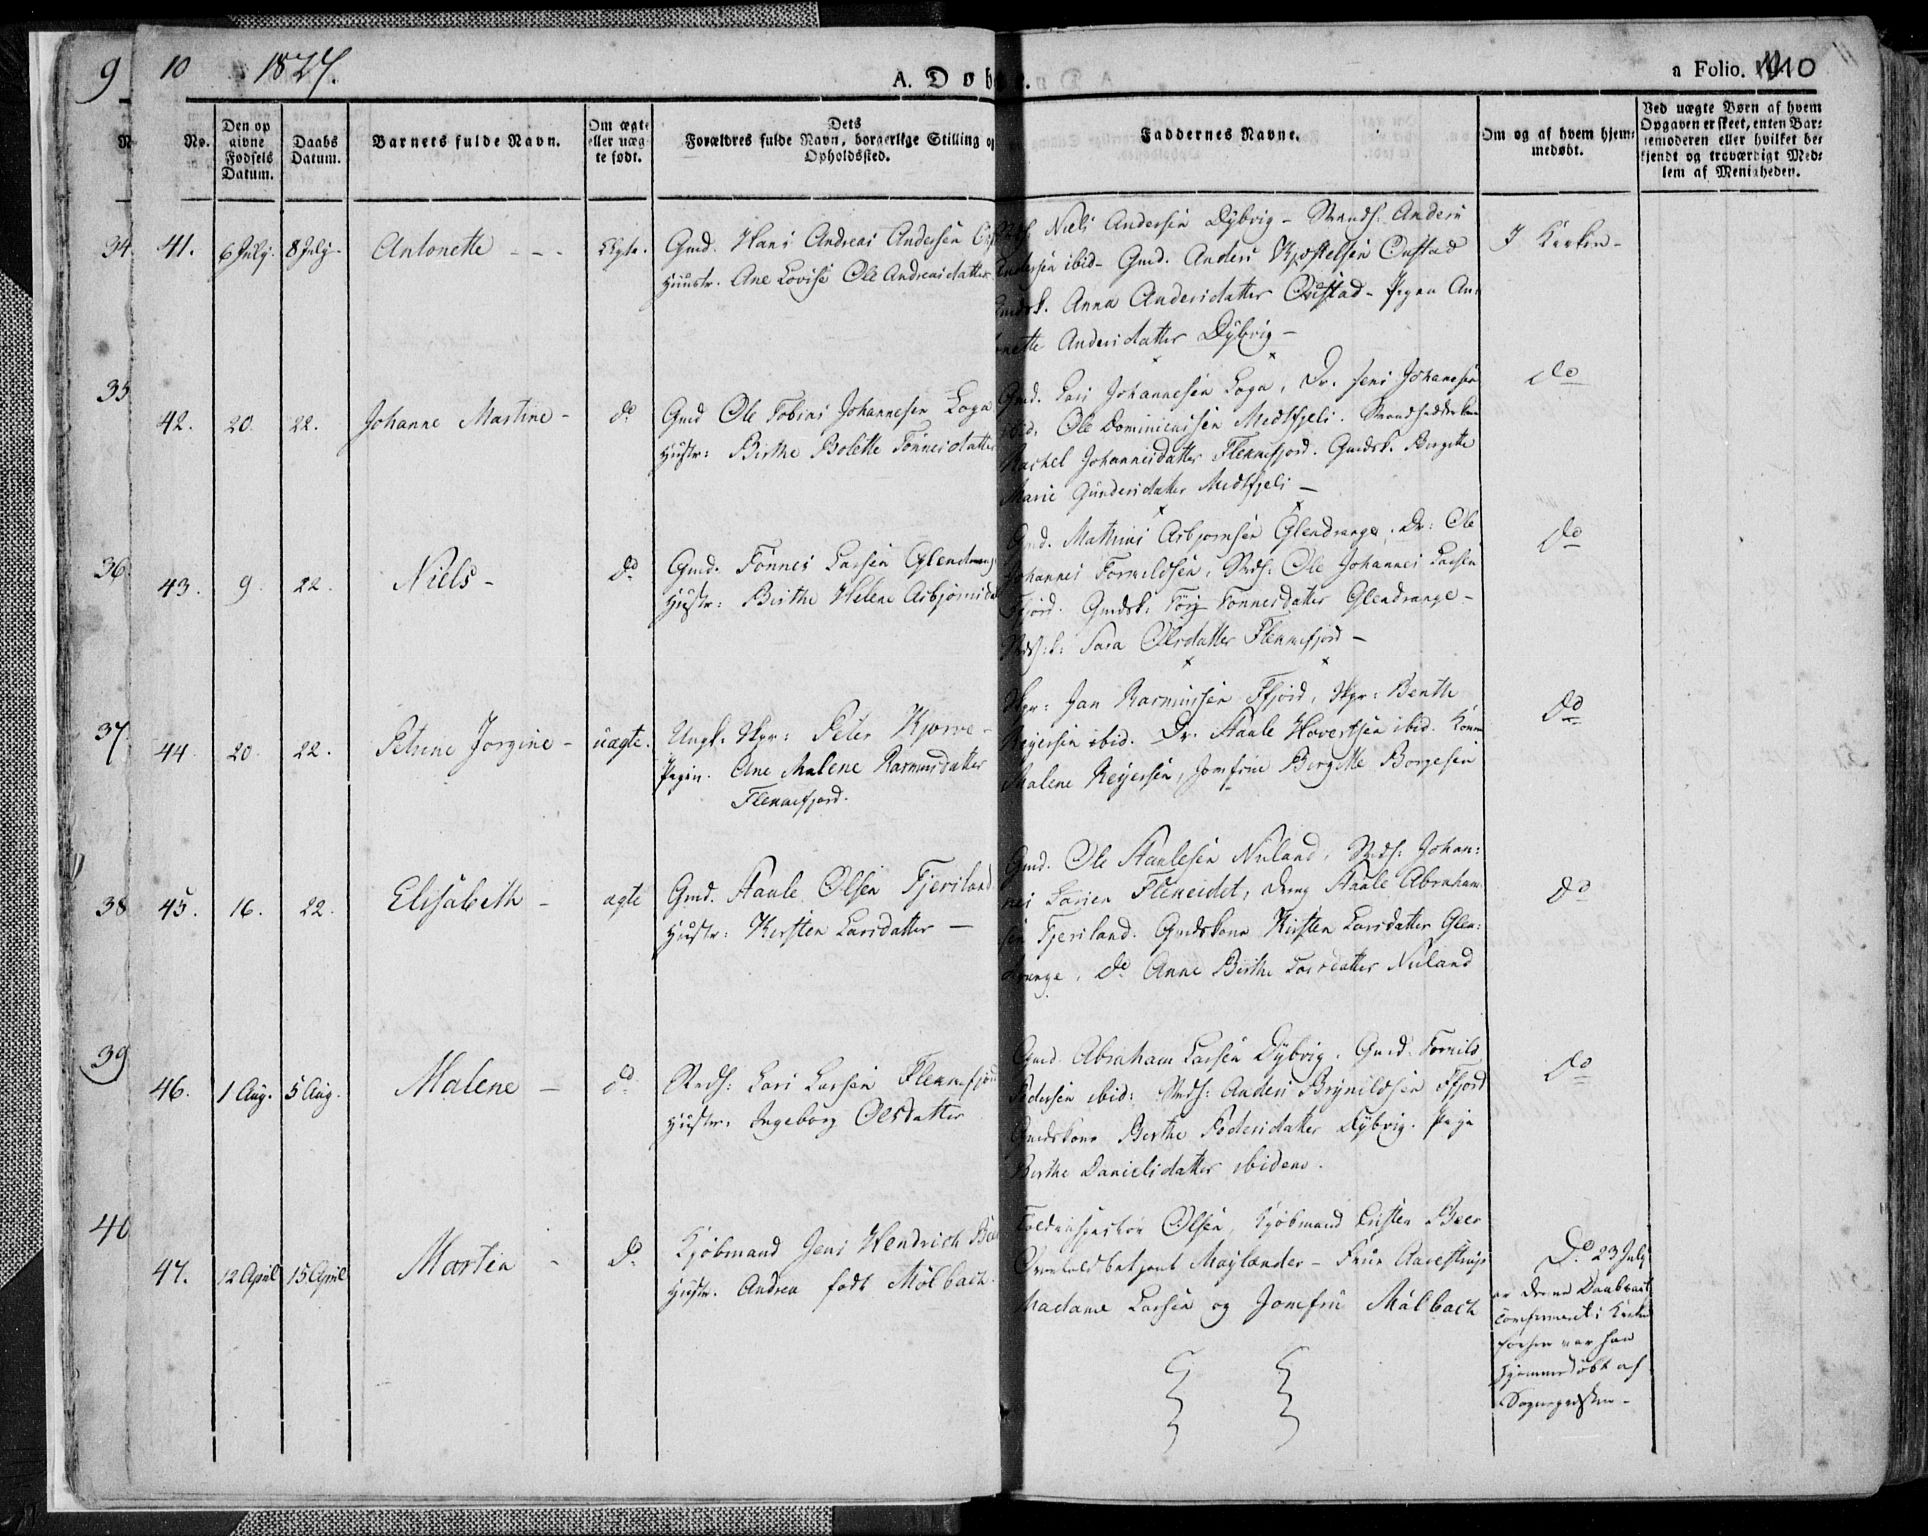 9
10
1827.
A. Døbte.
a Folio. 10
No.
Den op
givne
Fødsels
Datum.
Daabs
Datum.
Barnets fulde Navn.
Om ægte
eller uæg-
te født.
Dets
Forældres fulde Navn, borgerlige Stilling og
Opholdssted.
Faddernes Navne.
Om og af hvem hjem-
medøbt.
Ved uægte Børn af hvem
Opgaven er skeet, enten Bar-
nemoderen eller hvilket be-
kjendt og troværdigt Med-
lem af Menigheden.
34
41.
6 July.
8 July-
Antonette - - -
Ægte.
Gmd. Hans Andreas Andersen
Huustr. Ane Lovise Ole Andreasdatter
Niels Andersen Dybvig - Strands. Anders
Andersen ibid- Gmd. Anders Kjostelsen Oustad
Gmdsk. Anna Andersdatter Oustad- Pigen An-
tonette Andersdatter Dybvig-
I Kirken-
35
42.
20.
22.
Johanne Martine-
do
Gmd Ole Tobias Johannesen Loga
Hustr: Birthe Bolette Tønnesdatter
Gmd. Lars Johannesen Loga, Dr. Jens Johannesen
ibid. Ole Dominicussen Medsfjeli.
Rachel Johannesdatter Flekkefjord. Gmdsk. Borgitte
Marie Gundersdatter Medsfjeli-
Do
36
43.
9.
22.
Niels-
do
Gmd. Tønnes Larsen Glendrang
Hustr: Birthe Helene Asbjørnsda
Gmd. Mathias Asbjornsen Glendrange. Dr: Ole
Johannes Tormodsen, Stds: Ole Johannes Larsen
Ffjord. Gmdsk: Tønnesdatter Glendrange-
Sara Olesdatter Flekkefjord-
Do
37
44.
20.
22.
Petrine Jorgine-
uægte.
Ungk. Skpr: Peter Kjorve-
Pigen. Ane Malene Rasmusdatter
Flekkefjord.
Skpr: Jan Rasmussen Ffjord, Skpr: Benth
Reyersen ibid. Dr. Staale Hovertsen ibid. Kone
Malene Reyersen, Jomfrue Borgitte Borgesen
Do
38
45.
16.
22.
Elisabeth-
ægte
Gmd. Staale Olsen Tjersland
Hustr: Kirsten Larsdatter-
Gmd. Ole Staalesen Nuland, Stds: Johan:
nes Larsen Fleneidet, Dreng Staale Abraham:
sen Tjersland. Gmdskone Kirsten Larsdatter Glen:
drange, do Anne Birthe Larsdatter Nuland
Do
39
46.
1 Aug.
5 Aug.
Malene-
do
Stds: Lars Larsen Flekkefjord
Hustr: Ingeborg Olesdatter
Gmd. Abraham Larsen Dybvig. Gmd. Tormod
Pedersen ibid: Stds: Anders Brynildsen Ffjord
Gmdskone Berthe Pedersdatter Dybvig. Pige
Berthe Danielsdatter ibidem.
Do
40
47.
12 April
15 April
Martin -
do
Kjøbmand Jens Hendrich Beer
Hustr. Andrea født Mølbach.
Toldinspecteur Olsen, Kjøbmand Christen Beer
Overtoldbetjent Maylænder- Frue Aarestrup
Madame Larsen og Jomfru Mølbach
Do. 23 July
er denne Daab
confirmeret i Kirken
forhen var han
hjemmedøbt af
Sognepræsten-